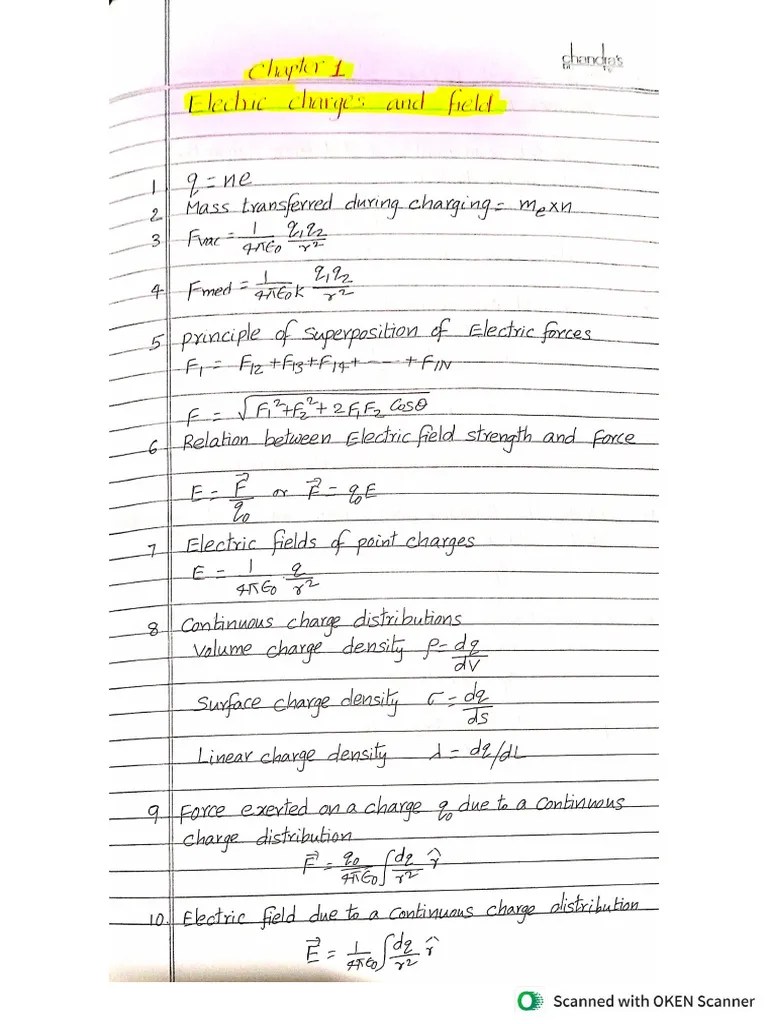 chandra's
Chapter 1
Electric charges and field
1 q = ne
2 Mass transferred during charging = mₑ×n
3 Fvac = 1/4πϵ₀ q₁q₂/r²
4 Fmed = 1/4πϵ₀k q₁q₂/r²
5 principle of superposition of Electric forces
F₁ = F₁₂ + F₁₃ + F₁₄ + ---- + F₁N
F = √F₁² + F₂² + 2F₁F₂ Cosθ
6 Relation between Electric field strength and force
E = F⃗/q₀ or F⃗ = q₀E
7 Electric fields of point charges
E = 1/4πϵ₀ q/r²
8 Continuous charge distributions
Volume charge density ρ = dq/dV
Surface charge density σ = dq/ds
Linear charge density λ = dq/dL
9 Force exerted on a charge q₀ due to a continuous
charge distribution
F⃗ = q₀/4πϵ₀ ∫ dq/r² r̂
10. Electric field due to a continuous charge distribution
E⃗ = 1/4πϵ₀ ∫ dq/r² r̂
Scanned with OKEN Scanner